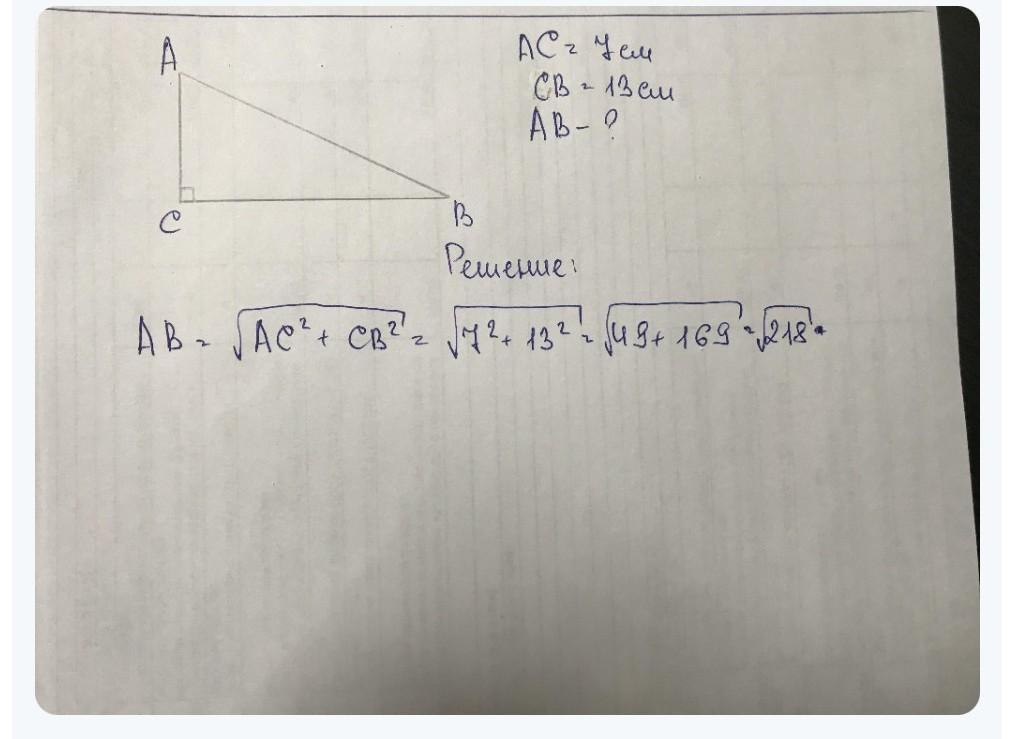 A
AC = 7 см
CB = 13 см
AB - ?
C
B
Решение:
AB = √AC² + CB² = √7² + 13² = √49 + 169 = √218.